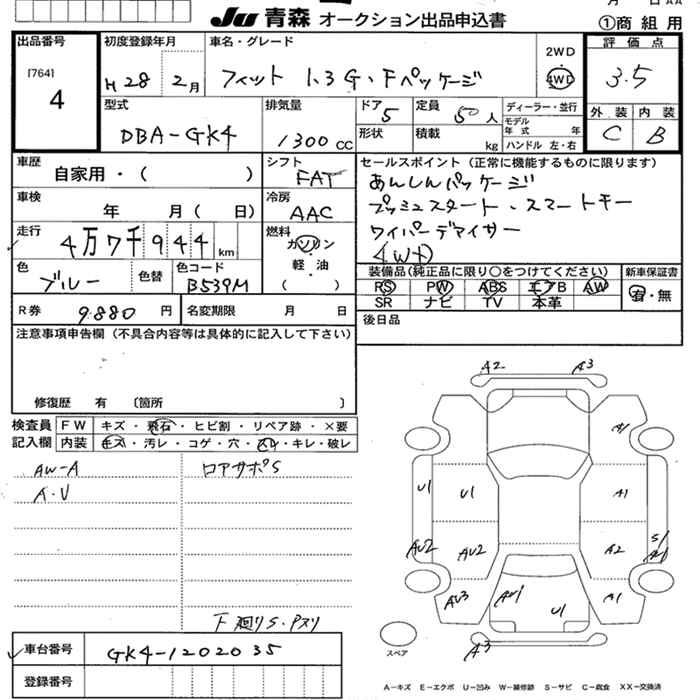 JU 青森 オークション出品申込書
①商組用
出品番号
[764]
4
初度登録年月
H 28 2月
車名・グレード
フィット 1.3G・Fパッケージ
2WD
4WD
評価点
3.5
型式
DBA-GK4
排気量
1300 CC
ドア
5
定員
5人
ディーラー・並行
モデル年式 年
形状
積載 kg
ハンドル 左・右
外装 内装
C B
車歴
自家用・( )
シフト
FAT
セールスポイント(正常に機能するものに限ります)
あんしんパッケージ
プッシュスタート・スマートキー
ワイパーデアイサー
4WD
車検
年 月( 日)
冷房
AAC
走行
4万7千944 km
燃料
ガソリン
軽・油
( )
色
ブルー
色替
色コード
B539M
装備品(純正品に限り〇をつけてください)
新車保証書
RS PW ABS エアB AW
SR ナビ TV 本革
有・無
R券
9.880円
名変期限 月 日
後日品
注意事項申告欄(不具合内容等は具体的に記入して下さい)
修復歴 有 〔箇所 〕
検査員記入欄
FW キズ・飛石・ヒビ割・リペア跡・×要
内装 キズ・汚レ・コゲ・穴・スレ・キレ・破レ
AW-A
A・U
ロアサポS
F 廻りS・Pスリ
A2 A3
A1
U1 U1 A1
AU2 AU2 A2 S1
AU3 AU1 U1 A1
A3
スペア
車台番号
GK4-1202035
登録番号
A-キズ E-エクボ U-凹み W-補修跡 S-サビ C-腐食 XX-交換済